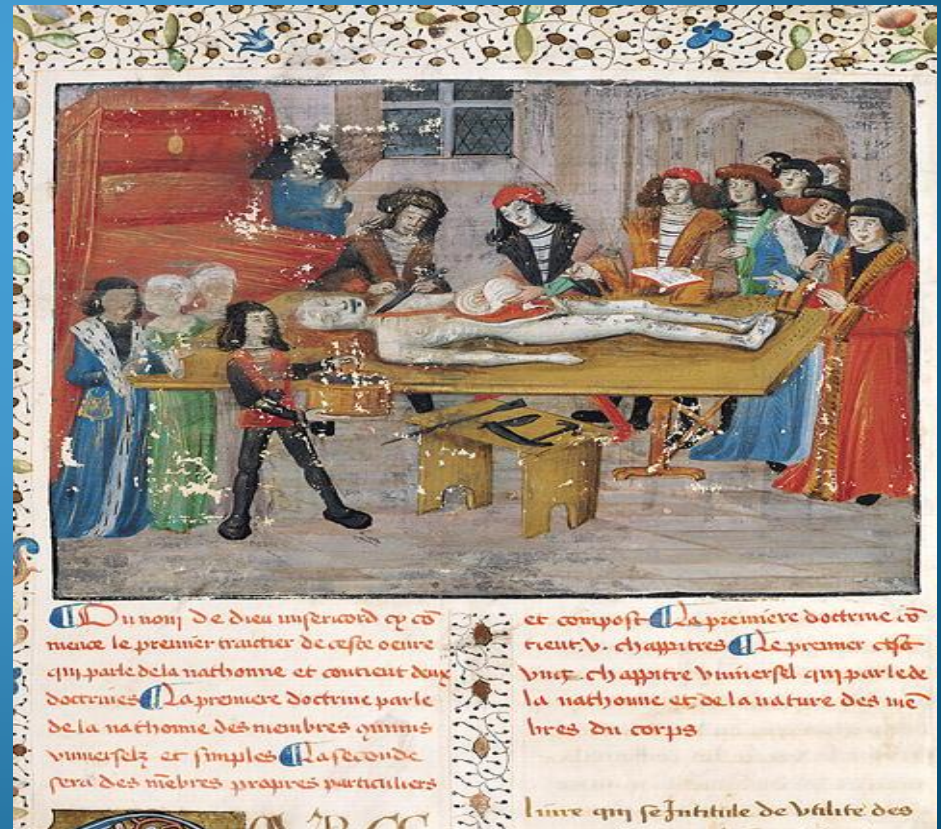 Du nom de dieu misericord cy cō
mence le premier traictier de ceste oeure
qui parle de la nathomie et contient deux
doctrines La premiere doctrine parle
de la nathomie des membres qmuns
vniuerselz et simples La seconde
sera des mēbres propres particuliers
et compost La premiere doctrine cō
tient .v. chappitres Le premier est
vng chappitre vniuersel qui parle de
la nathomie et de la nature des mē
bres du corps
liure qui se Intitule de vtilite des